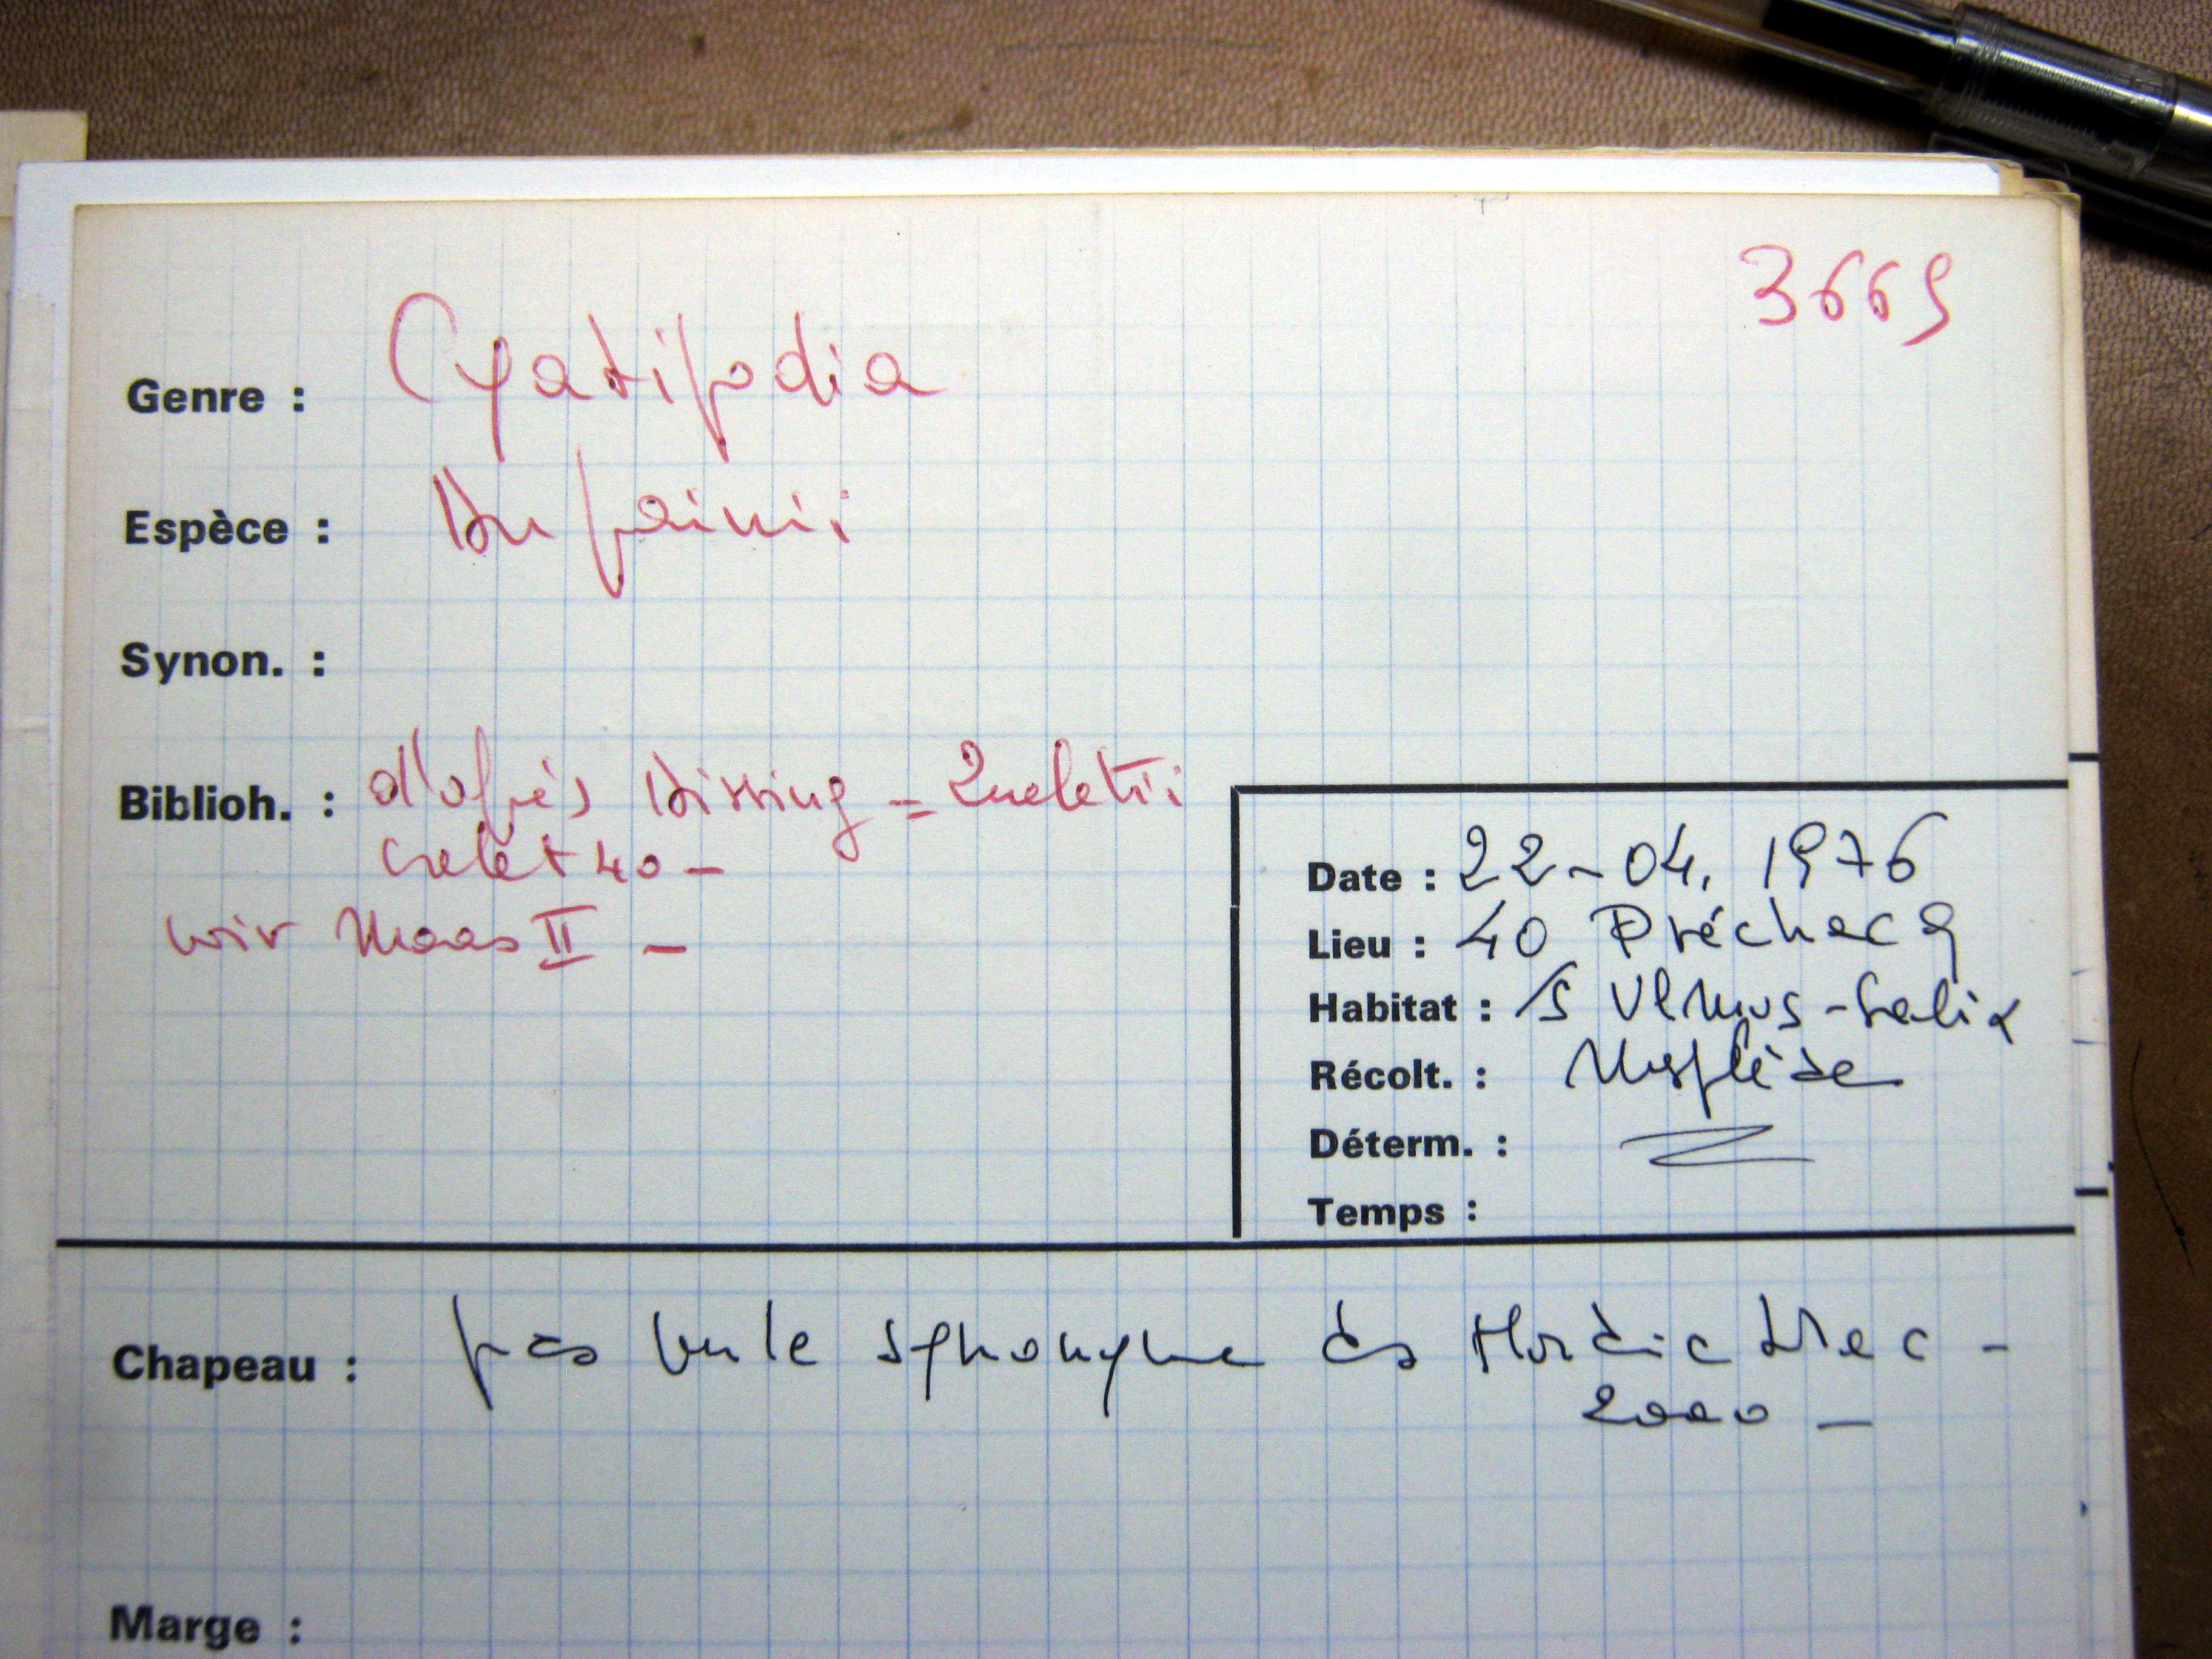 3669
Genre : Cyatipodia
Espèce : Dupainii
Synon. :
Biblioh. : d'après Dissing = Queletii
Cretet 40 -
voir Maas II -
Date : 22-04. 1976
Lieu : 40 Préchacq
Habitat : /s Ulmus-Salix
Récolt. : Mesplède
Déterm. :
Temps :
Chapeau : pas vu le synonyme ds Nordic Mac -
2000 -
Marge :